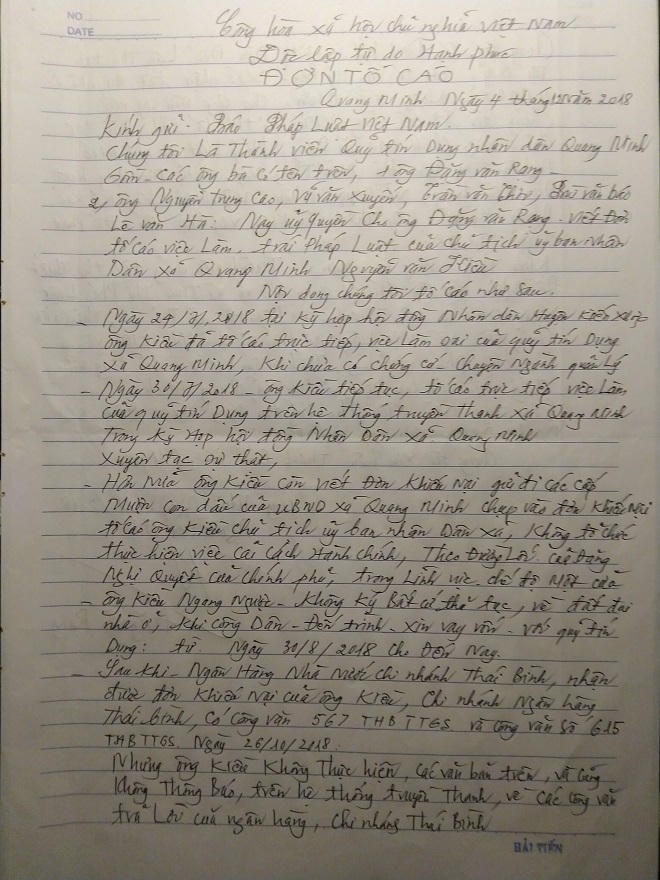 NO
DATE
Cộng hòa xã hội chủ nghĩa việt Nam
Độc lập tự do Hạnh phúc
ĐƠN TỐ CÁO
Quang Minh Ngày 4 tháng 12 năm 2018
Kính gửi - Báo Pháp Luật Việt Nam.
Chúng tôi Là Thành viên Quỹ tín Dụng nhân dân Quang Minh
Gồm - Các ông bà có tên trên, 1 ông Đặng văn Rạng -
2, ông Nguyễn Trung Cao, Vũ văn Xuyên, Trần văn Thìn, văn báo
Lê văn Hà: Nay uỷ quyền Cho ông Đặng văn Rạng - viết Đơn
tố cáo việc Làm. trái Pháp Luật của chủ tịch uỷ ban nhân
Dân xã Quang Minh Nguyễn văn Kiều
Nội dung chúng tôi tố cáo như sau.
- Ngày 24/7/2018 tại Kỳ họp hội đồng Nhân dân Huyện Kiến Xương
ông Kiều đã tố cáo trực tiếp, việc Làm sai của quỹ tín Dụng
xã Quang Minh, Khi chưa có chứng cớ - chuyên Ngành quản Lý
- Ngày 30/7/2018 - ông Kiều tiếp tục, tố cáo trực tiếp việc Làm
của quỹ tín Dụng trên hệ thống truyền Thanh xã Quang Minh
Trong Kỳ Họp hội đồng Nhân Dân xã Quang Minh
Xuyên tạc sự thật,
- Hơn Nữa ông Kiều còn viết Đơn Khiếu Nại gửi đi các cấp
Mượn con dấu của UBND xã Quang Minh chụp vào đơn Khiếu Nại
tố cáo ông Kiều chủ tịch uỷ ban nhân Dân xã, Không tổ chức
thực hiện việc cải cách Hành chính, Theo Đường Lối của Đảng
Nghị Quyết của chính phủ, trong Lĩnh vực. chế độ Một cửa
- ông Kiều Ngang Ngược - Không Ký Bất cứ thủ tục, về đất đai
nhà ở, Khi công Dân - Đến trình - xin vay vốn - với quỹ tín
Dụng: từ Ngày 30/8/2018 cho Đến Nay.
- Sau khi - Ngân Hàng Nhà Nước chi nhánh Thái Bình, nhận
được đơn Khiếu Nại của ông Kiều, Chi nhánh Ngân hàng
Thái bình, có công văn 567 THBTTGS và công văn số 615
THBTTGS. Ngày 26/10/2018.
Nhưng ông Kiều Không Thực hiện, các văn bản trên, và cũng
Không Thông Báo, trên hệ thống truyền Thanh, về các công văn
trả Lời của ngân hàng, chi nháng Thái Bình
HẢI TIẾN